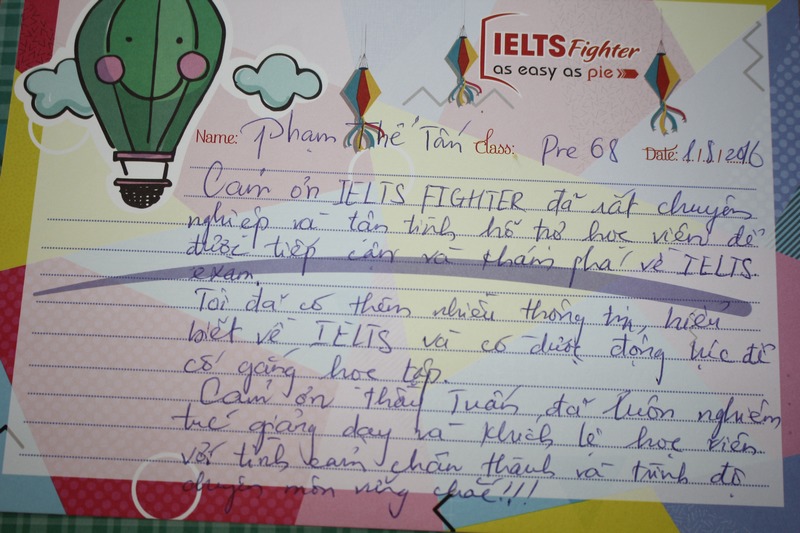 IELTS Fighter
as easy as pie
Name: Phạm Thế Tấn Class: Pre 68 Date: 8/8/2016
Cảm ơn IELTS FIGHTER đã rất chuyên
nghiệp và tận tình hỗ trợ học viên để
được tiếp cận và khám phá về IELTS
exam.
Tôi đã có thêm nhiều thông tin, hiểu
biết về IELTS và có được động lực để
cố gắng học tập.
Cảm ơn thầy Tuấn đã luôn nghiêm
túc giảng dạy và khích lệ học viên
với tình cảm chân thành và trình độ
chuyên môn vững chắc!!!